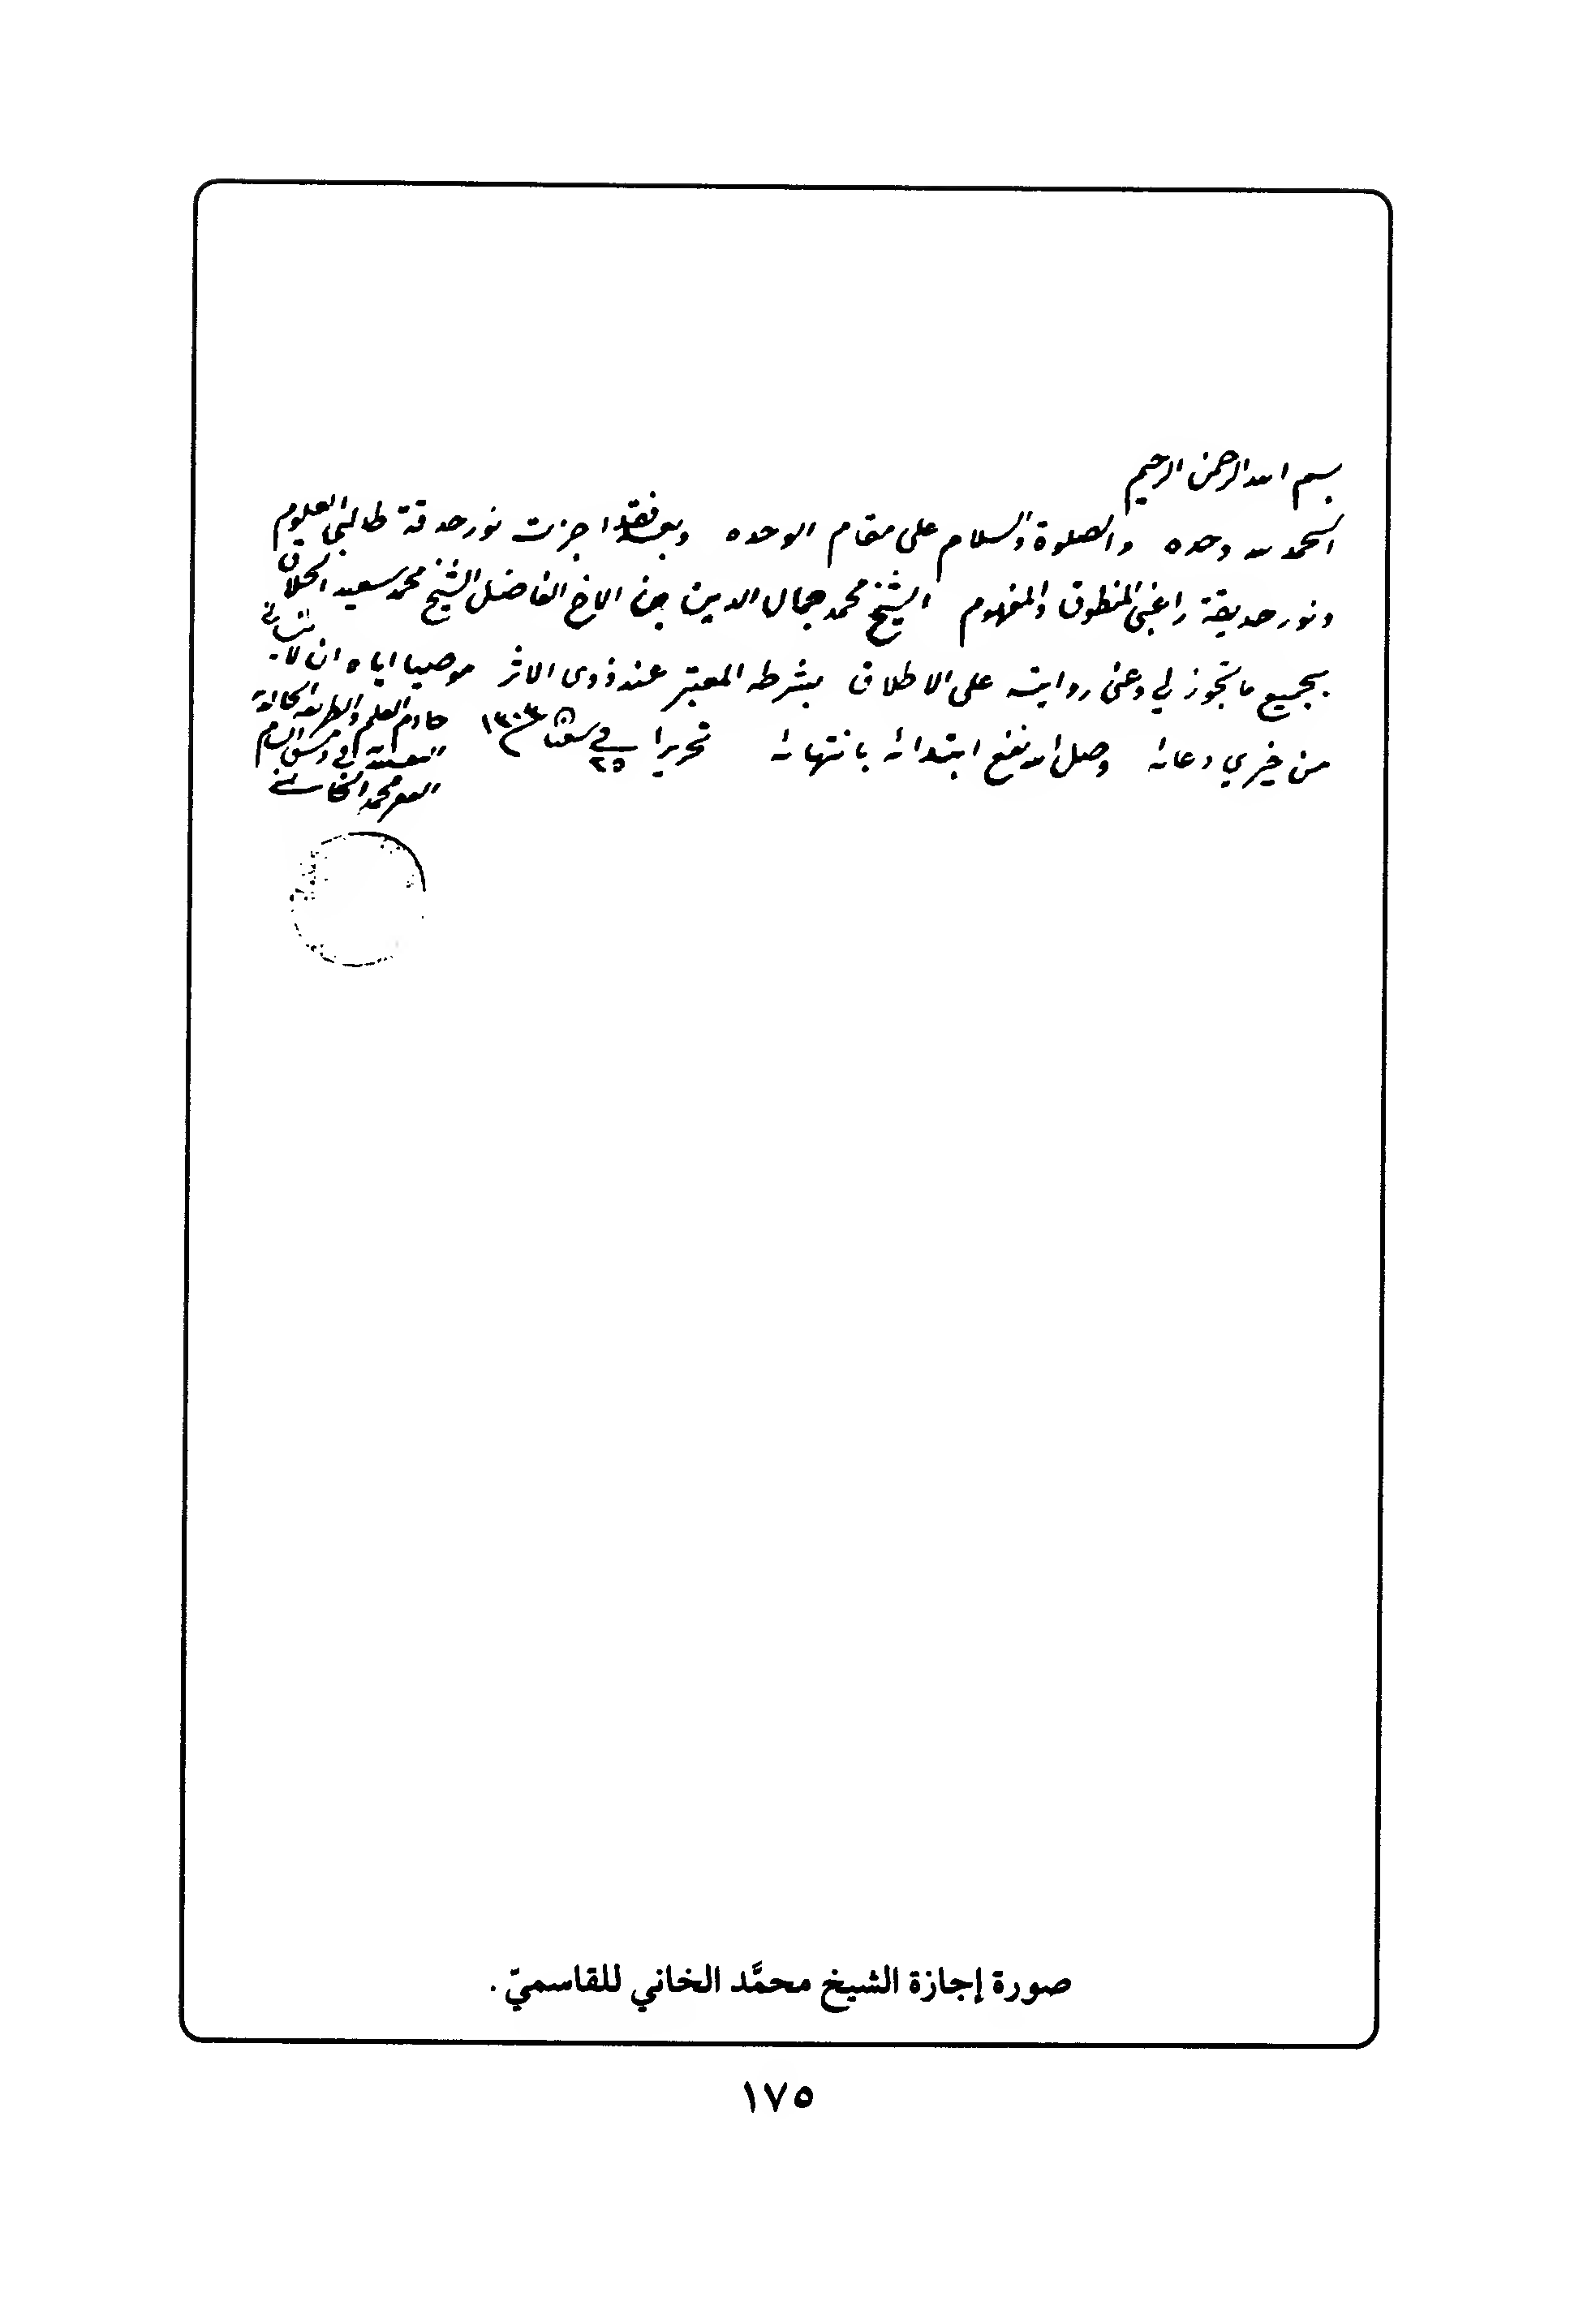 بسم الله الرحمن الرحيم
الحمد لله وحده والصلوة والسلام على مقام الوحده وبعد فقد اجزت نور حدقة طالبي العلوم
ونور حديقة راغبي المنطوق والمفهوم الشيخ محمد جمال الدين بن الاخ الفاضل الشيخ محمد سعيد الحلاق
بجميع ما تجوز لي وعني روايته على الاطلاق بشرطه المعتبر عند ذوى الاثر موصيا اياه ان لا ينساني
من خيري دعائه وصل الله نفع ابتدائه بانتهائه تحريرا في ٢٥ ١٣٠٣
خادم العلم والطريقة الخالدية
النقشبندية في دمشق الشام
الفقير محمد الخاني
صورة إجازة الشيخ محمَّد الخاني للقاسميّ .
١٧٥